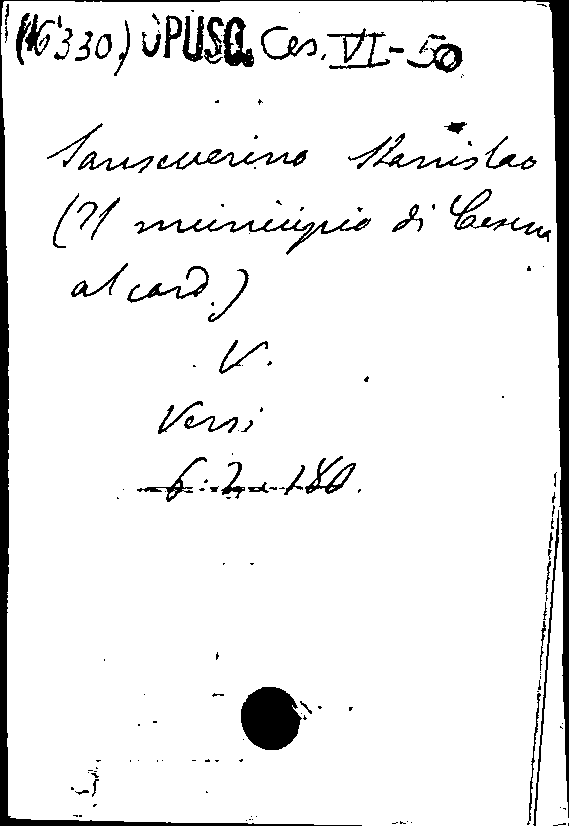 (16330) OPUSC. Ces. VI-50
Sanseverino Stanislao
(Il municipio di Cesena
al card.)
V.
Versi
6. 2. 180.